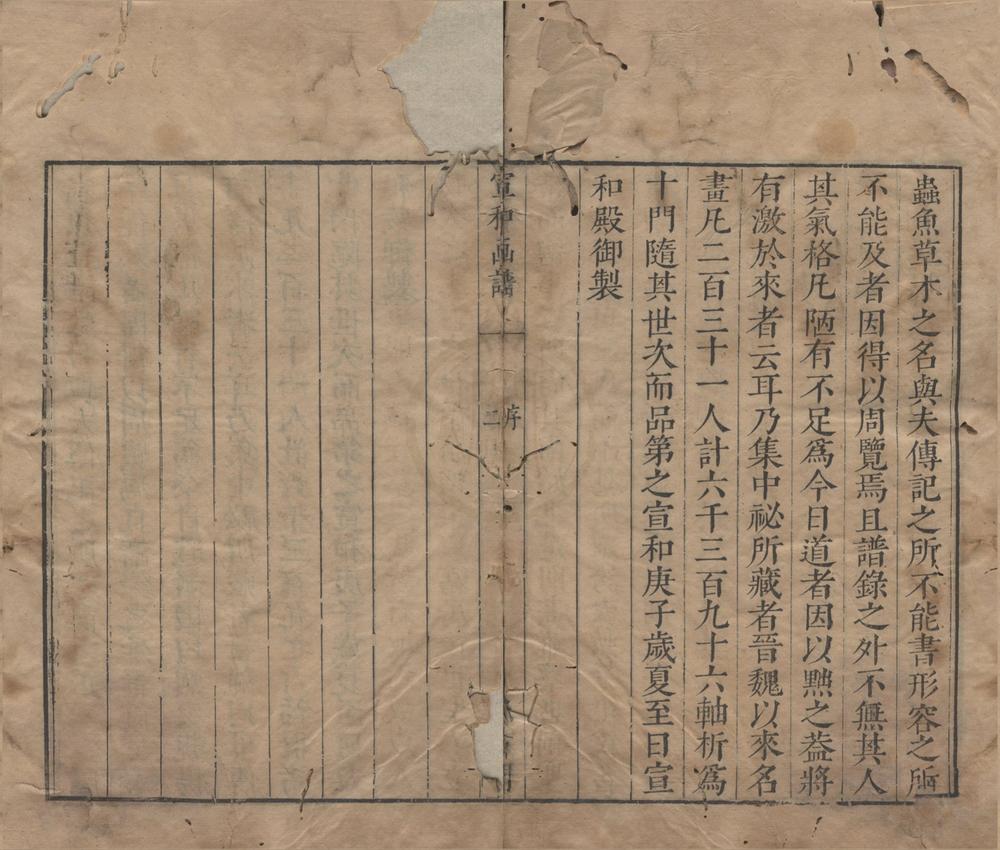 蟲魚草木之名與夫傳記之所不能書形容之所
不能及者因得以周覽焉且譜錄之外不無其人
其氣格凡陋有不足爲今日道者因以黜之葢將
有激於來者云耳乃集中祕所藏者晉魏以來名
畫凡二百三十一人計六千三百九十六軸析爲
十門隨其世次而品第之宣和庚子歲夏至日宣
和殿御製
宣和画譜
序
二